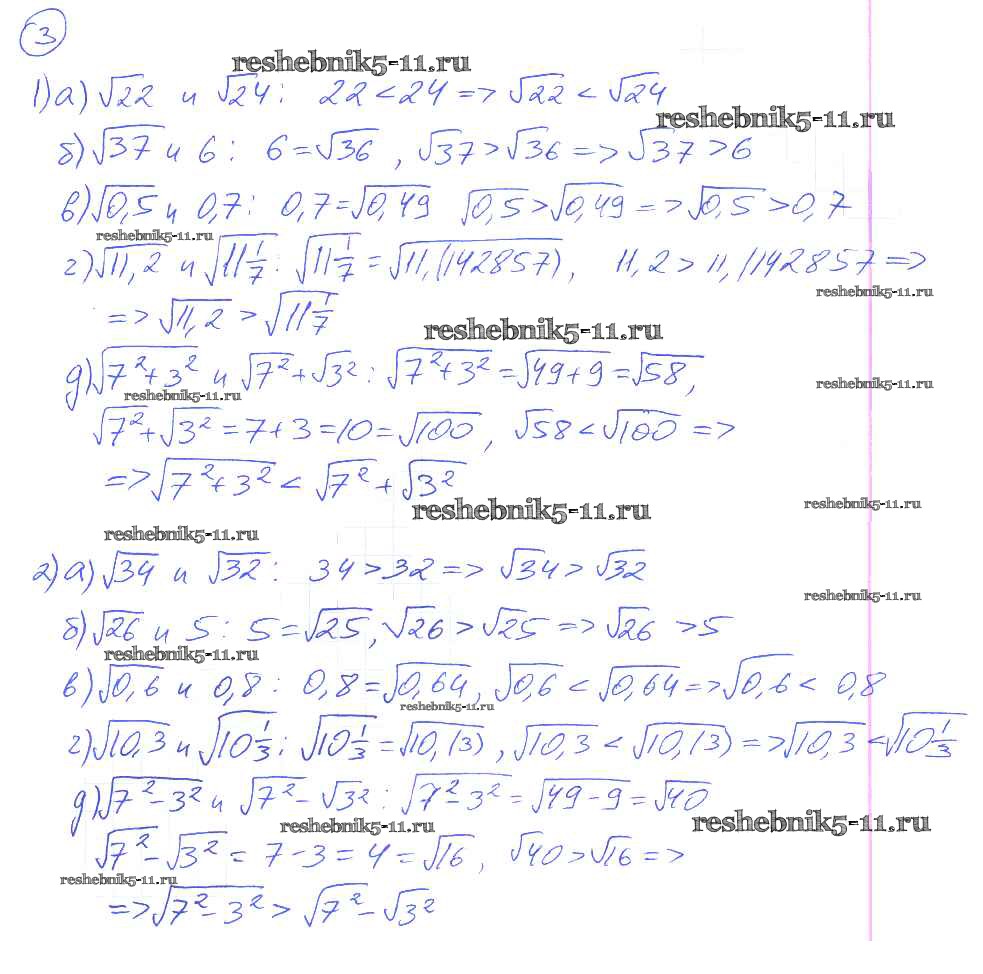 3
reshebnik5-11.ru
1) а) √22 и √24 : 22 < 24 => √22 < √24
reshebnik5-11.ru
б) √37 и 6 : 6 = √36 , √37 > √36 => √37 > 6
в) √0,5 и 0,7 : 0,7 = √0,49 √0,5 > √0,49 => √0,5 > 0,7
reshebnik5-11.ru
г) √11,2 и √11 1/7 : √11 1/7 = √11,(142857) , 11,2 > 11,(142857 =>
reshebnik5-11.ru
=> √11,2 > √11 1/7
reshebnik5-11.ru
д) √7²+3² и √7² + √3² : √7²+3² = √49+9 = √58 ,
reshebnik5-11.ru
reshebnik5-11.ru
√7² + √3² = 7+3 = 10 = √100 , √58 < √100 =>
=> √7²+3² < √7² + √3²
reshebnik5-11.ru
reshebnik5-11.ru
reshebnik5-11.ru
2) а) √34 и √32 : 34 > 32 => √34 > √32
reshebnik5-11.ru
б) √26 и 5 : 5 = √25 , √26 > √25 => √26 > 5
reshebnik5-11.ru
в) √0,6 и 0,8 : 0,8 = √0,64 , √0,6 < √0,64 => √0,6 < 0,8
reshebnik5-11.ru
г) √10,3 и √10 1/3 : √10 1/3 = √10,(3) , √10,3 < √10,(3) => √10,3 < √10 1/3
д) √7²-3² и √7² - √3² : √7²-3² = √49-9 = √40
reshebnik5-11.ru
reshebnik5-11.ru
√7² - √3² = 7-3 = 4 = √16 , √40 > √16 =>
reshebnik5-11.ru
=> √7²-3² > √7² - √3²